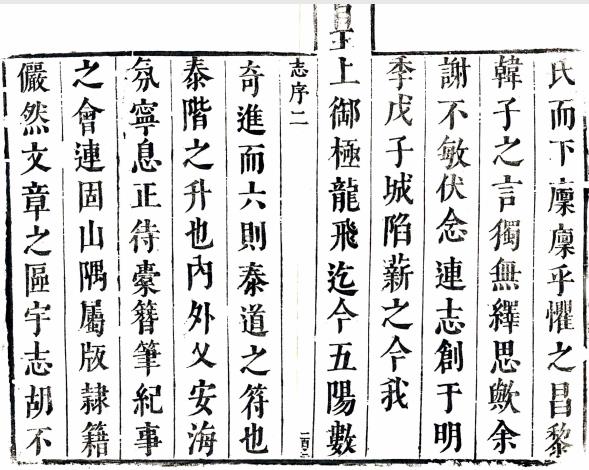 氏而下廩廩乎懼之昌黎
韓子之言獨無繹思歟余
謝不敏伏念連志創于明
季戊子城陷薪之今我
皇上御極龍飛迄今五陽數
志序二
奇進而六則泰道之符也
泰階之升也內外乂安海
氛寧息正待橐簪筆紀事
之會連固山隅屬版隷籍
儼然文章之區宇志胡不